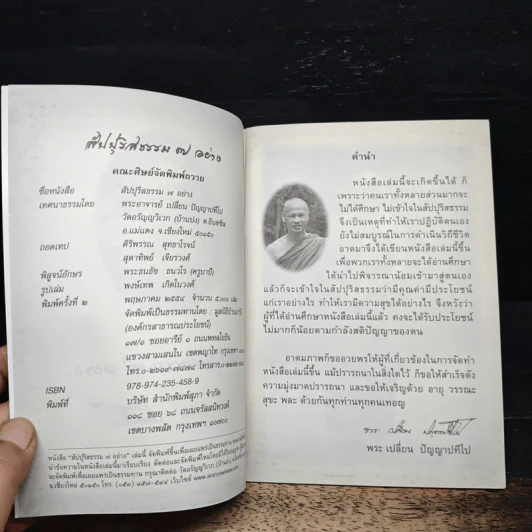 สัปปุริสธรรม ๗ อย่าง
คณะศิษย์จัดพิมพ์ถวาย
ชื่อหนังสือ สัปปุริสธรรม ๗ อย่าง
เทศนาธรรมโดย พระอาจารย์ เปลี่ยน ปัญญาปทีโป
วัดอรัญญวิเวก (บ้านปง) ต.อินทขิล
อ.แม่แตง จ.เชียงใหม่ ๕๐๑๕๐
ถอดเทป ศิริพรรณ สุทธาโรจน์
สุดาทิพย์ เจียรวงศ์
พิสูจน์อักษร พระธนธัช ธนวโร (ครูบาปี)
รูปเล่ม พงษ์เทพ เกิดในวงศ์
พิมพ์ครั้งที่ ๒ พฤษภาคม ๒๕๕๔ จำนวน ๕,๐๐๐ เล่ม
จัดพิมพ์เป็นธรรมทานโดย : มูลนิธิบ้าน
(องค์กรสาธารณะประโยชน์)
๑๗/๑ ซอยอารีย์ ๑ ถนนพหลโยธิน
แขวงสามเสนใน เขตพญาไท กรุงเทพ
ISBN 978-974-235-458-9
พิมพ์ที่ บริษัท สำนักพิมพ์สุภา จำกัด
๑๑๘ ซอย ๖๘ ถนนจรัลสนิทวงศ์
เขตบางพลัด กรุงเทพฯ ๑๐๗๐๐
หนังสือ "สัปปุริสธรรม ๗ อย่าง" เล่มนี้ จัดพิมพ์ขึ้นเพื่อเผยแพร่เป็นธรรมทาน
จ.เชียงใหม่ ๕๐๑๕๐ โทร. (๐๕๓)
คำนำ
หนังสือเล่มนี้จะเกิดขึ้นได้ ก็
เพราะว่าคนเราทั้งหลายส่วนมากจะ
ไม่ได้ศึกษา ไม่เข้าใจในสัปปุริสธรรม
จึงเป็นเหตุที่ทำให้เราปฏิบัติตนเอง
ยังไม่สมบูรณ์ในการดำเนินวิถีชีวิต
อาตมาจึงได้เขียนหนังสือเล่มนี้ขึ้น
เพื่อพวกเราทั้งหลายจะได้อ่านศึกษา
ได้นำไปพิจารณาน้อมเข้ามาสู่ตนเอง
แล้วก็จะเข้าใจในสัปปุริสธรรมว่ามีคุณค่ามีประโยชน์
แก่เราอย่างไร ทำให้เรามีความสุขได้อย่างไร จึงหวังว่า
ผู้ที่ได้อ่านศึกษาหนังสือเล่มนี้แล้ว คงจะได้รับประโยชน์
ไม่มากก็น้อยตามกำลังสติปัญญาของตน
อาตมาภาพก็ขออวยพรให้ผู้ที่เกี่ยวข้องในการจัดทำ
หนังสือเล่มนี้ขึ้น แม้ปรารถนาในสิ่งใดไว้ ก็ขอให้สำเร็จดัง
ความมุ่งมาดปรารถนา และขอให้เจริญด้วย อายุ วรรณะ
สุขะ พละ ด้วยกันทุกท่านทุกคนเทอญ
พระ เปลี่ยน ปัญญาปทีโป
พระ เปลี่ยน ปัญญาปทีโป